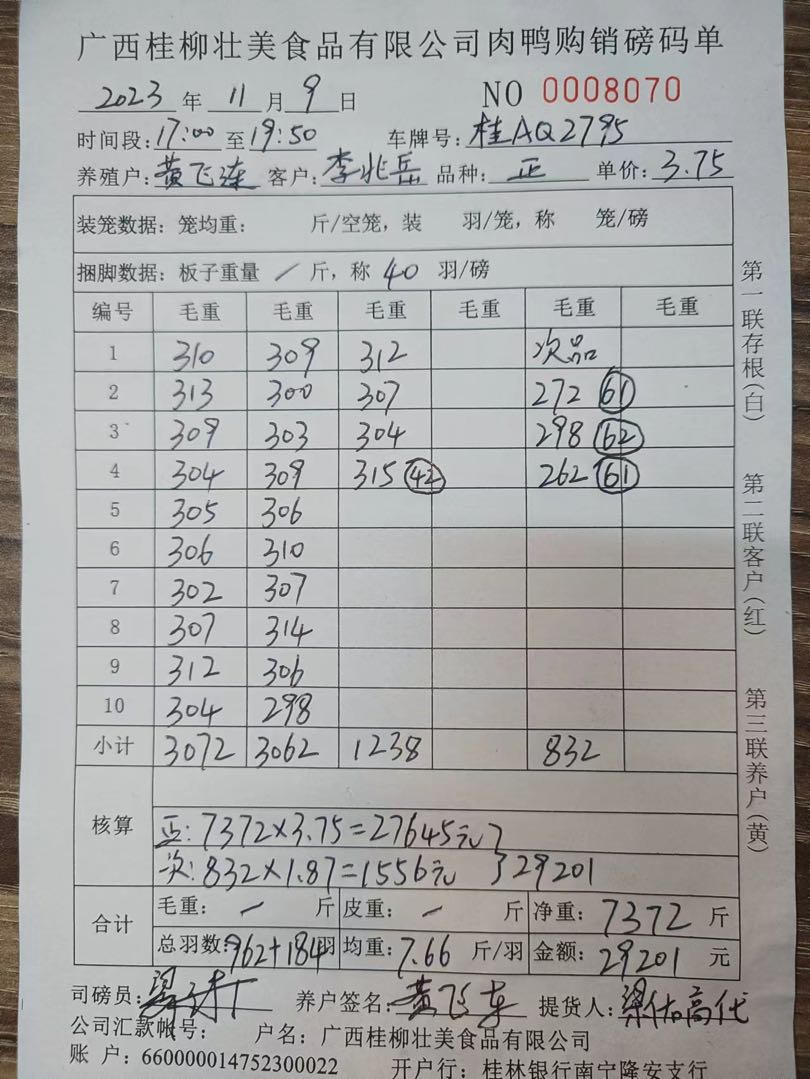 广西桂柳壮美食品有限公司肉鸭购销磅码单
2023年 11月 9日 NO 0008070
时间段:17:00至19:50 车牌号:桂AQ2795
养殖户:黄飞连 客户:李兆岳 品种:正 单价:3.75
装笼数据: 笼均重: 斤/空笼, 装 羽/笼, 称 笼/磅
捆脚数据: 板子重量 / 斤, 称 40 羽/磅
编号 毛重 毛重 毛重 毛重 毛重 毛重
1 310 309 312 次品
2 313 300 307 272 61
3 309 303 304 298 62
4 304 309 315 42 262 61
5 305 306
6 306 310
7 302 307
8 307 314
9 312 306
10 304 298
小计 3072 3062 1238 832
核算
正: 7372×3.75=27645元
次: 832×1.87=1556元 } 29201
合计
毛重: / 斤 皮重: / 斤 净重: 7372 斤
总羽数: 962+184羽 均重: 7.66 斤/羽 金额: 29201 元
司磅员: 养户签名: 黄飞 提货人: 梁
公司汇款帐号: 户名: 广西桂柳壮美食品有限公司
账 户: 660000014752300022 开户行: 桂林银行南宁隆安支行
第一联存根(白)
第二联客户(红)
第三联养户(黄)